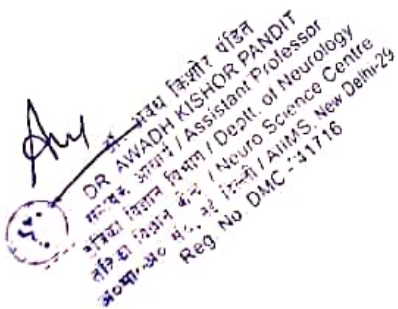 डा. अवध किशोर पंडित
DR AWADH KISHOR PANDIT
सहायक आचार्य / Assistant Professor
विभाग / Deptt. of Neurology
केन्द्र / Neuro Science Centre
नई दिल्ली / AIIMS, New Delhi-29
Reg No. DMC - 41716